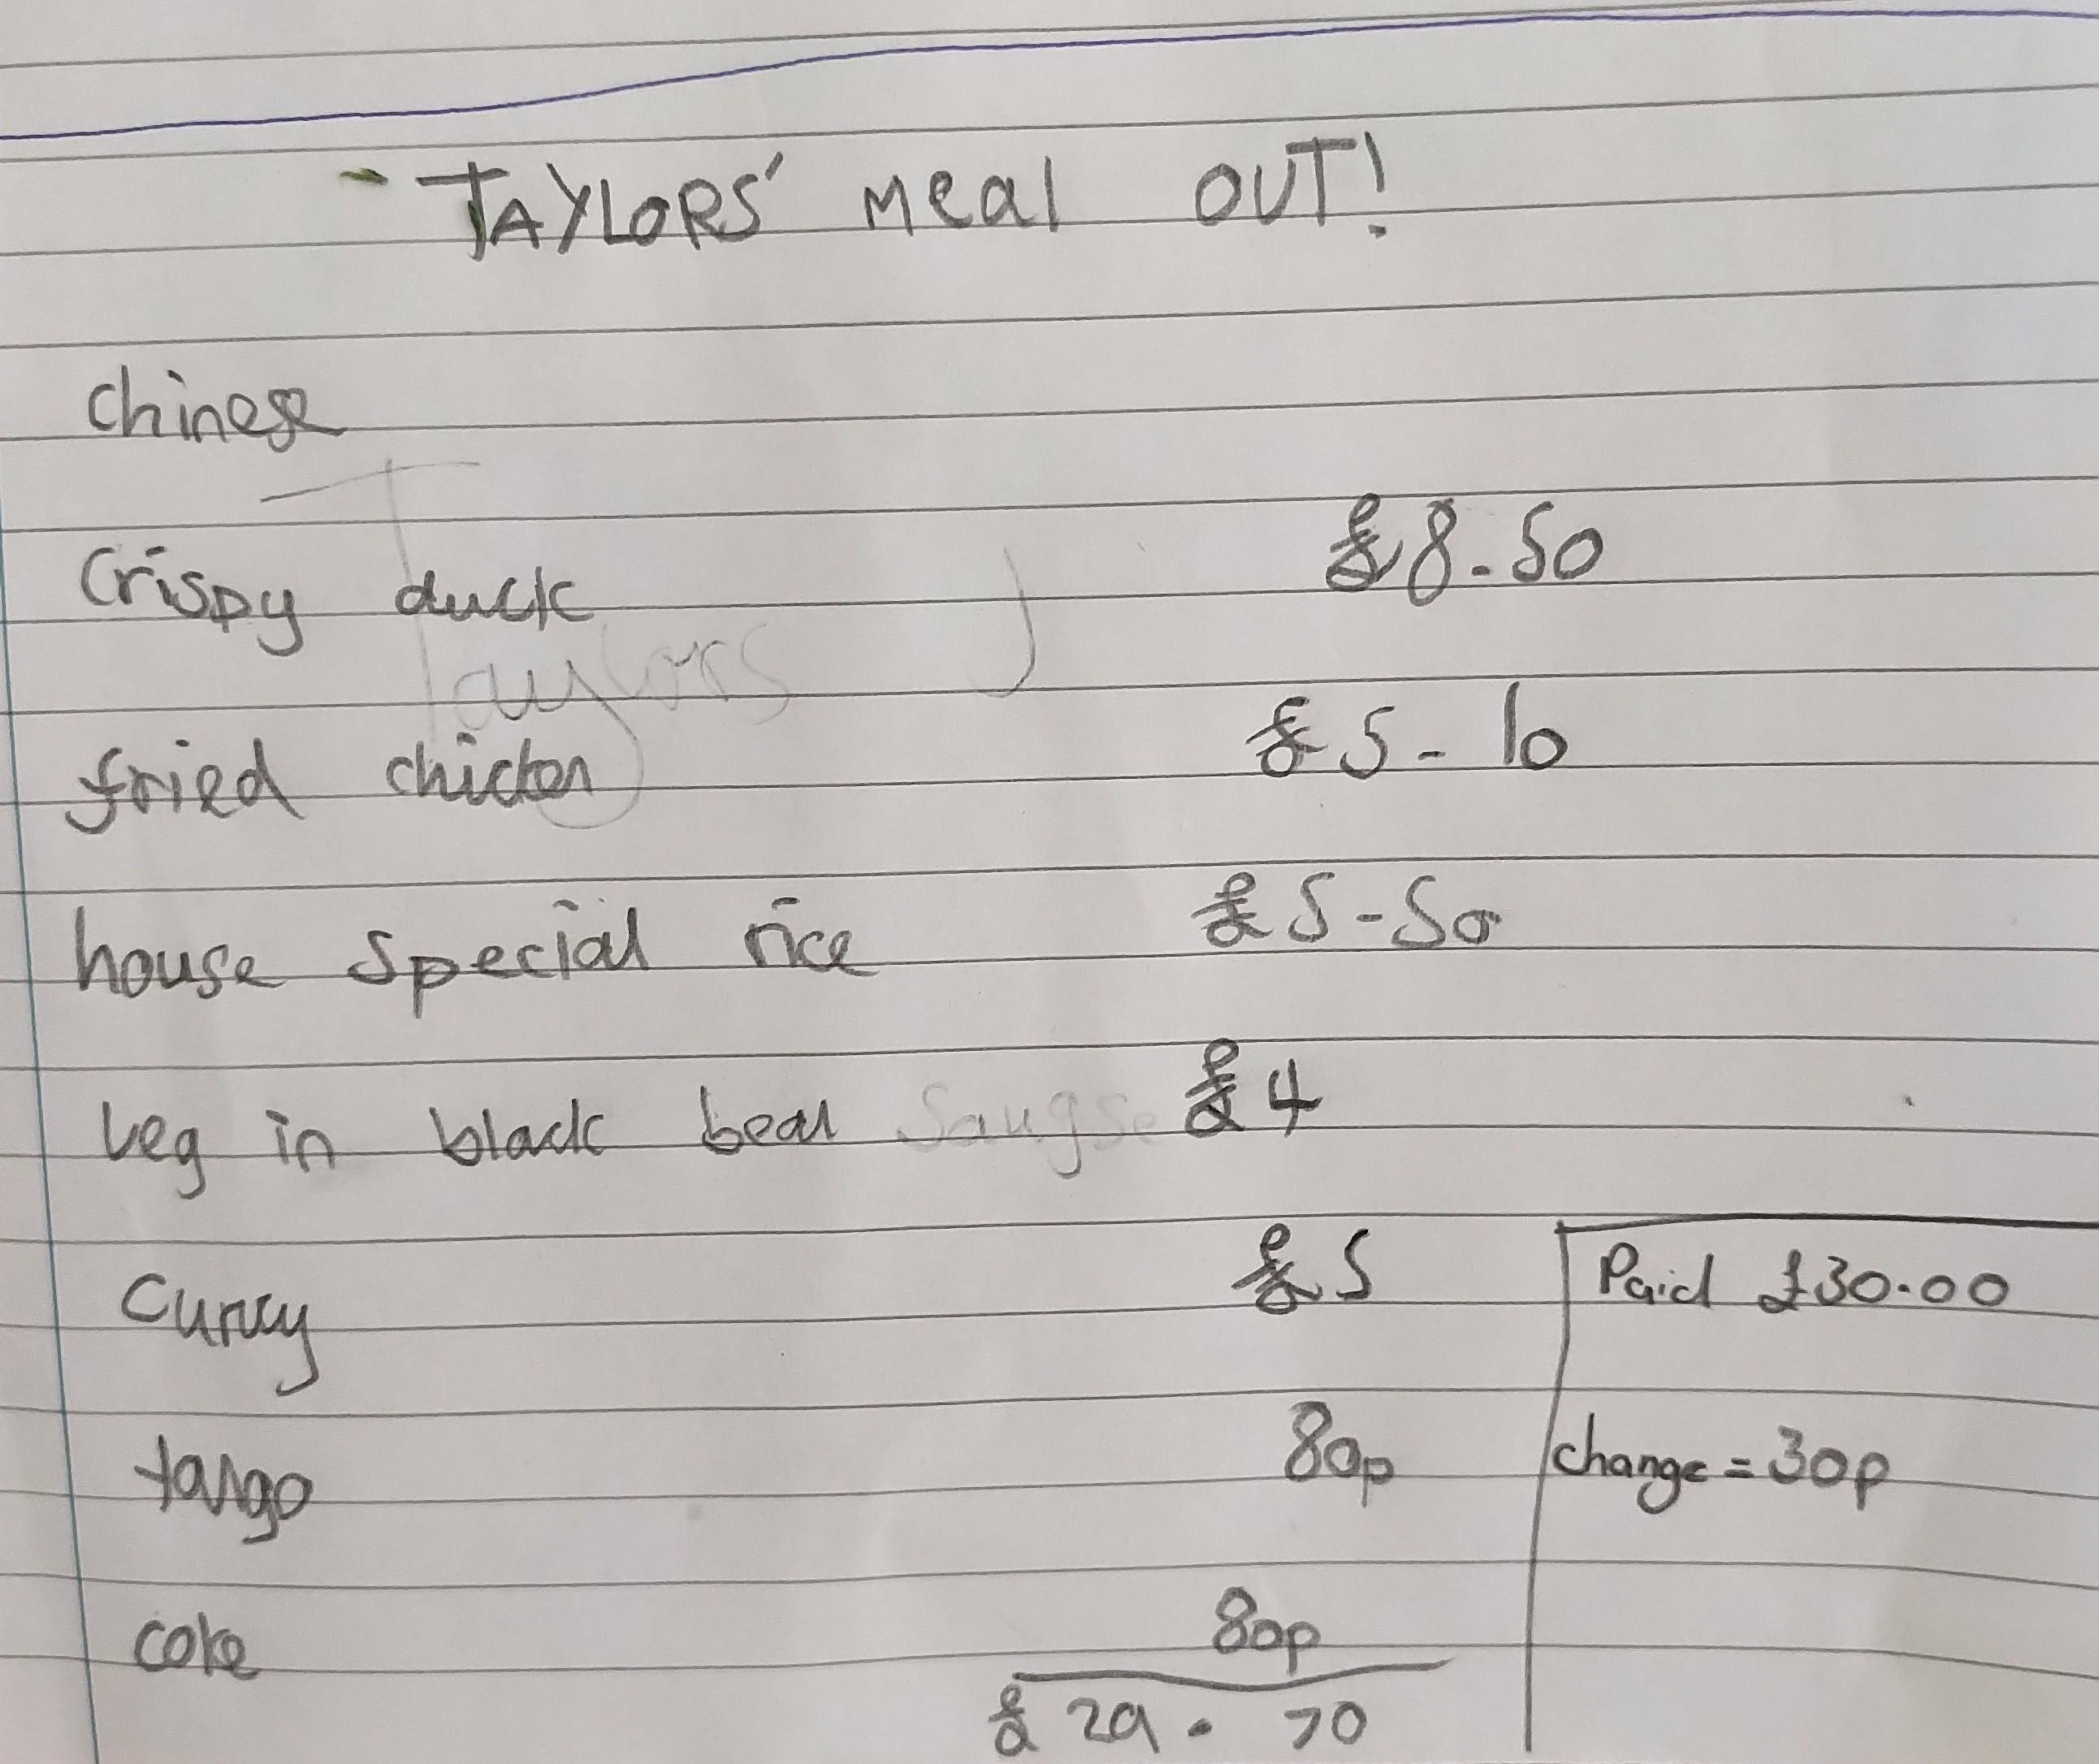 TAYLORS' meal OUT!
Chinese
Crispy duck £8.50
Taylors
fried chicken £5-10
house special rice £5-50
leg in black bean Saugse £4
Curry £5
Paid £30.00
tango 80p
change = 30p
coke 80p
£29.70